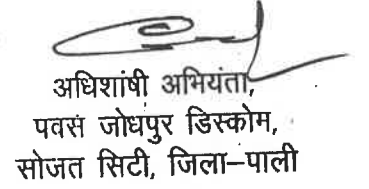 अधिशांषी अभियंता,
पवसं जोधपुर डिस्कोम,
सोजत सिटी, जिला–पाली